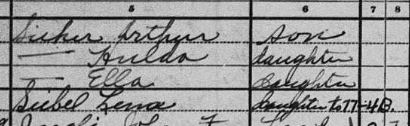 5 6 7 8
Sieker Arthur son
— Hulda daughter
— Ella daughter
Siebel Lena daughter to 77-4B.